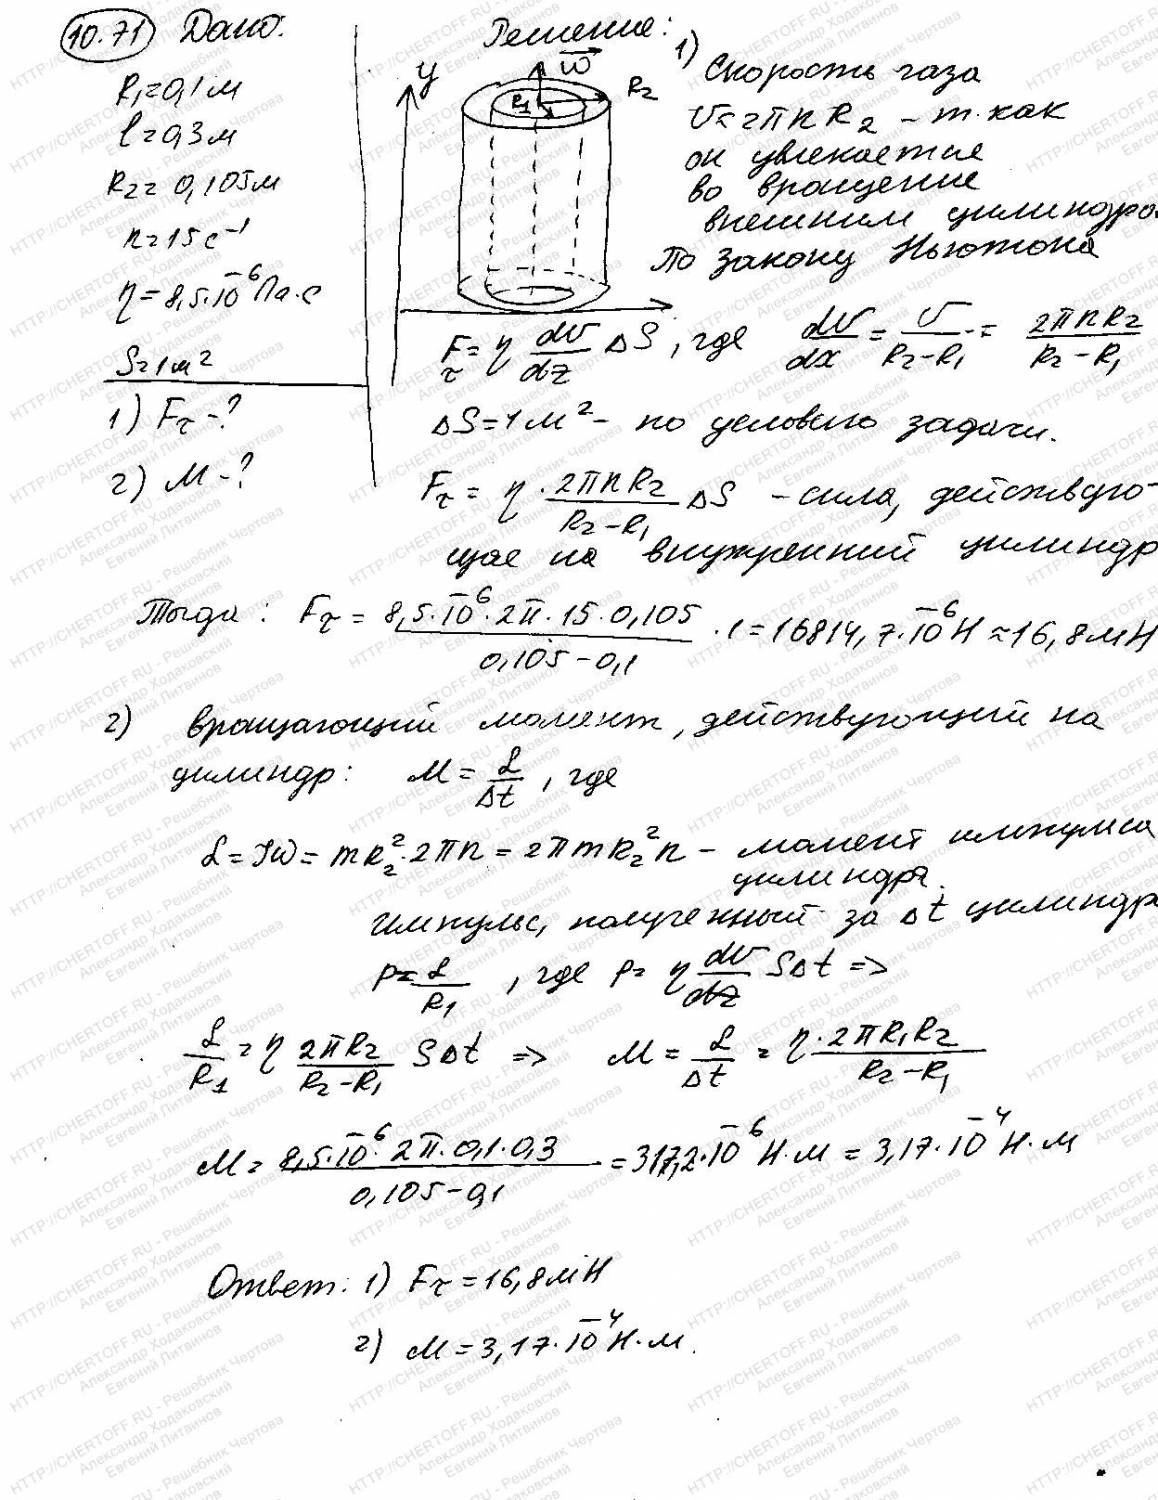 10.71 Дано:
R₁=0,1м
l=0,3м
R₂= 0,105м
n=15с⁻¹
η=8,5·10⁻⁶Па·с
S=1м²
1) Fτ -?
2) M -?
Решение:
y
ω
R₁
R₂
1) Скорость газа
v=2πnR₂ - т.как
он увлекается
во вращение
внешним цилиндро
По закону Ньютона
Fτ= η dv/dz ΔS, где dv/dx = v/(R₂-R₁) = 2πnR₂/(R₂-R₁)
ΔS=1м² - по условию задачи.
Fτ = η · 2πnR₂/(R₂-R₁) ΔS - сила, действую-
щая на внутренний цилиндр
Тогда: Fτ = 8,5·10⁻⁶·2π·15·0,105/(0,105-0,1) ·1=16814,7·10⁻⁶Н≈16,8мН
2) вращающий момент, действующий на
цилиндр: M = L/Δt, где
L=Jω= mR₂²·2πn=2πmR₂²n - момент импульса
цилиндра.
импульс, полученный за Δt цилиндр
p=L/R₁, где p= η dv/dz SΔt =>
L/R₁ = η 2πR₂/(R₂-R₁) SΔt => M = L/Δt = η·2πR₁R₂/(R₂-R₁)
M= 8,5·10⁻⁶·2π·0,1·0,3/(0,105-0,1) =317,2·10⁻⁶Н·м = 3,17·10⁻⁴Н·м
Ответ: 1) Fτ=16,8мН
2) M=3,17·10⁻⁴Н·м.
HTTP://CHERTOFF.RU - Решебник Чертова
Александр Ходаковский
Евгений Литвинов